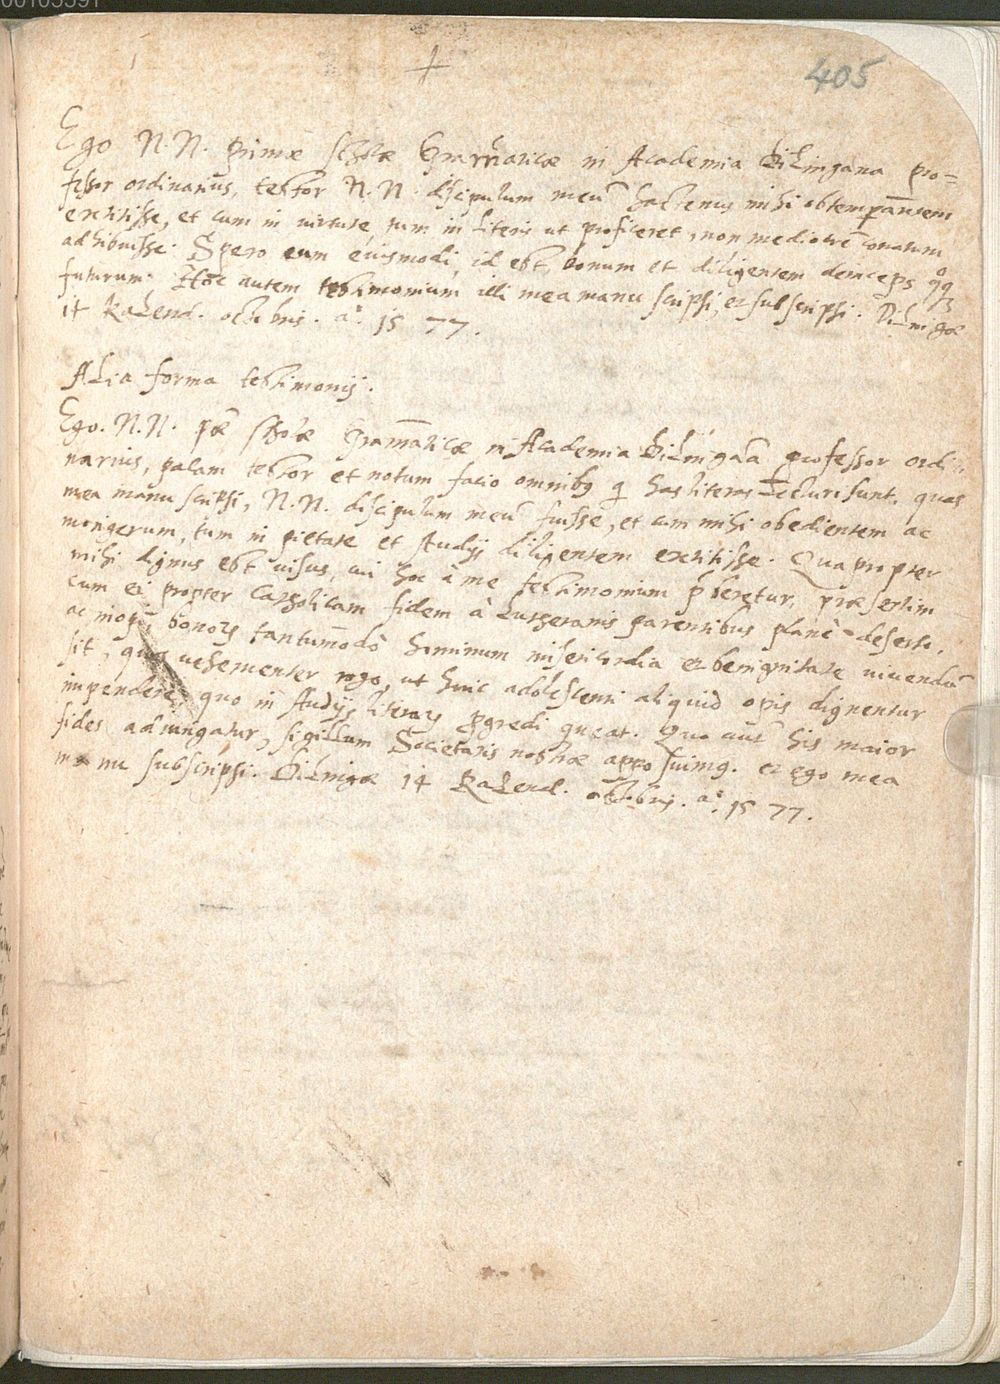 405
Ego N.N. primæ scholæ Gram̄aticæ in Academia Dilingana pro=
fessor ordinarius, testor N.N. discipulum meū hactenus mihi obtemperantem
extitisse, et cum in virtute, tum in literis ut proficeret, non mediocrē conatum
adhibuisse. Spero eum eiusmodi, id est, bonum et diligentem deinceps qq
futurum. Hoc autem testimonium illi mea manu scripsi, et subscripsi. Dilingæ
14 Kalend. octobris. aº. 1577.
Alia forma testimonij.
Ego. N.N. pæ scholæ Gram̄aticæ in Academia Dilingāa professor ordi
narius, palam testor et notum facio omnibq q has literas lecturi sunt, quas
mea manu scripsi, N.N. discipulum meū fuisse, et cum mihi obedientem ac
morigerum, tum in pietate et studijs diligentem extitisse. Quapropter
mihi dignus est uisus, cui hoc à me testimonium pberetur, præsertim
cum ei propter Catholicam fidem à Lutheranis parentibus planè deserto,
ac bonorꝫ tantum̄odò hominum misericordia et benignitate uiuendū
sit, quos uehementer rogo, ut huic adolescenti aliquid opis dignentur
impendere, quo in studijs literarꝫ pgredi queat. Quo aūt his maior
fides adiungatur, sigillum Societatis nostræ apposuimq. et ego mea
manu subscripsi. Dilingæ 14 Kalend. octobris. aº. 1577.